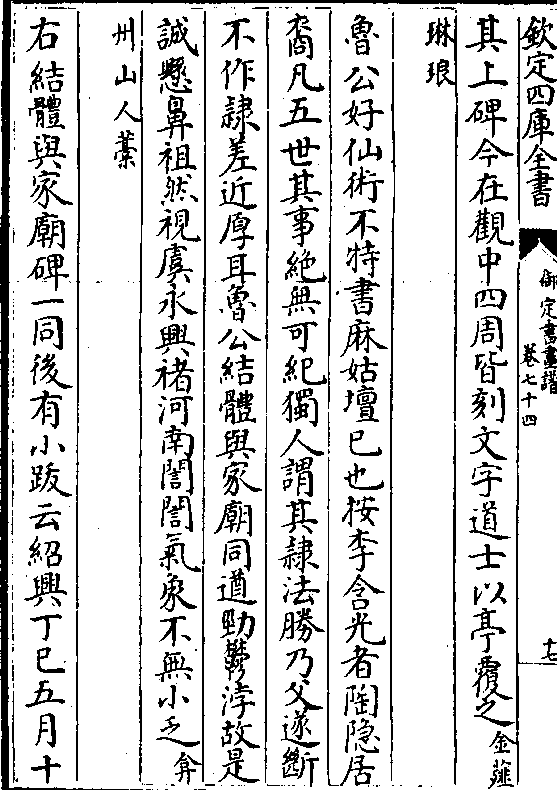 欽定四庫全書
御定書畫譜
卷七十四
十七
其上碑今在觀中四周皆刻文字道士以亭覆之金薤
琳琅
魯公好仙術不特書麻姑壇已也按李含光者陶隐居
裔凡五世其事絶無可紀獨人謂其隷法勝乃父遂斷
不作隷差近厚耳魯公結體與家廟同遒勁鬱浡故是
誠懸鼻祖然視虞永興禇河南誾誾氣象不無小乏弇
州山人藳
右結體與家廟碑一同後有小跋云紹興丁巳五月十